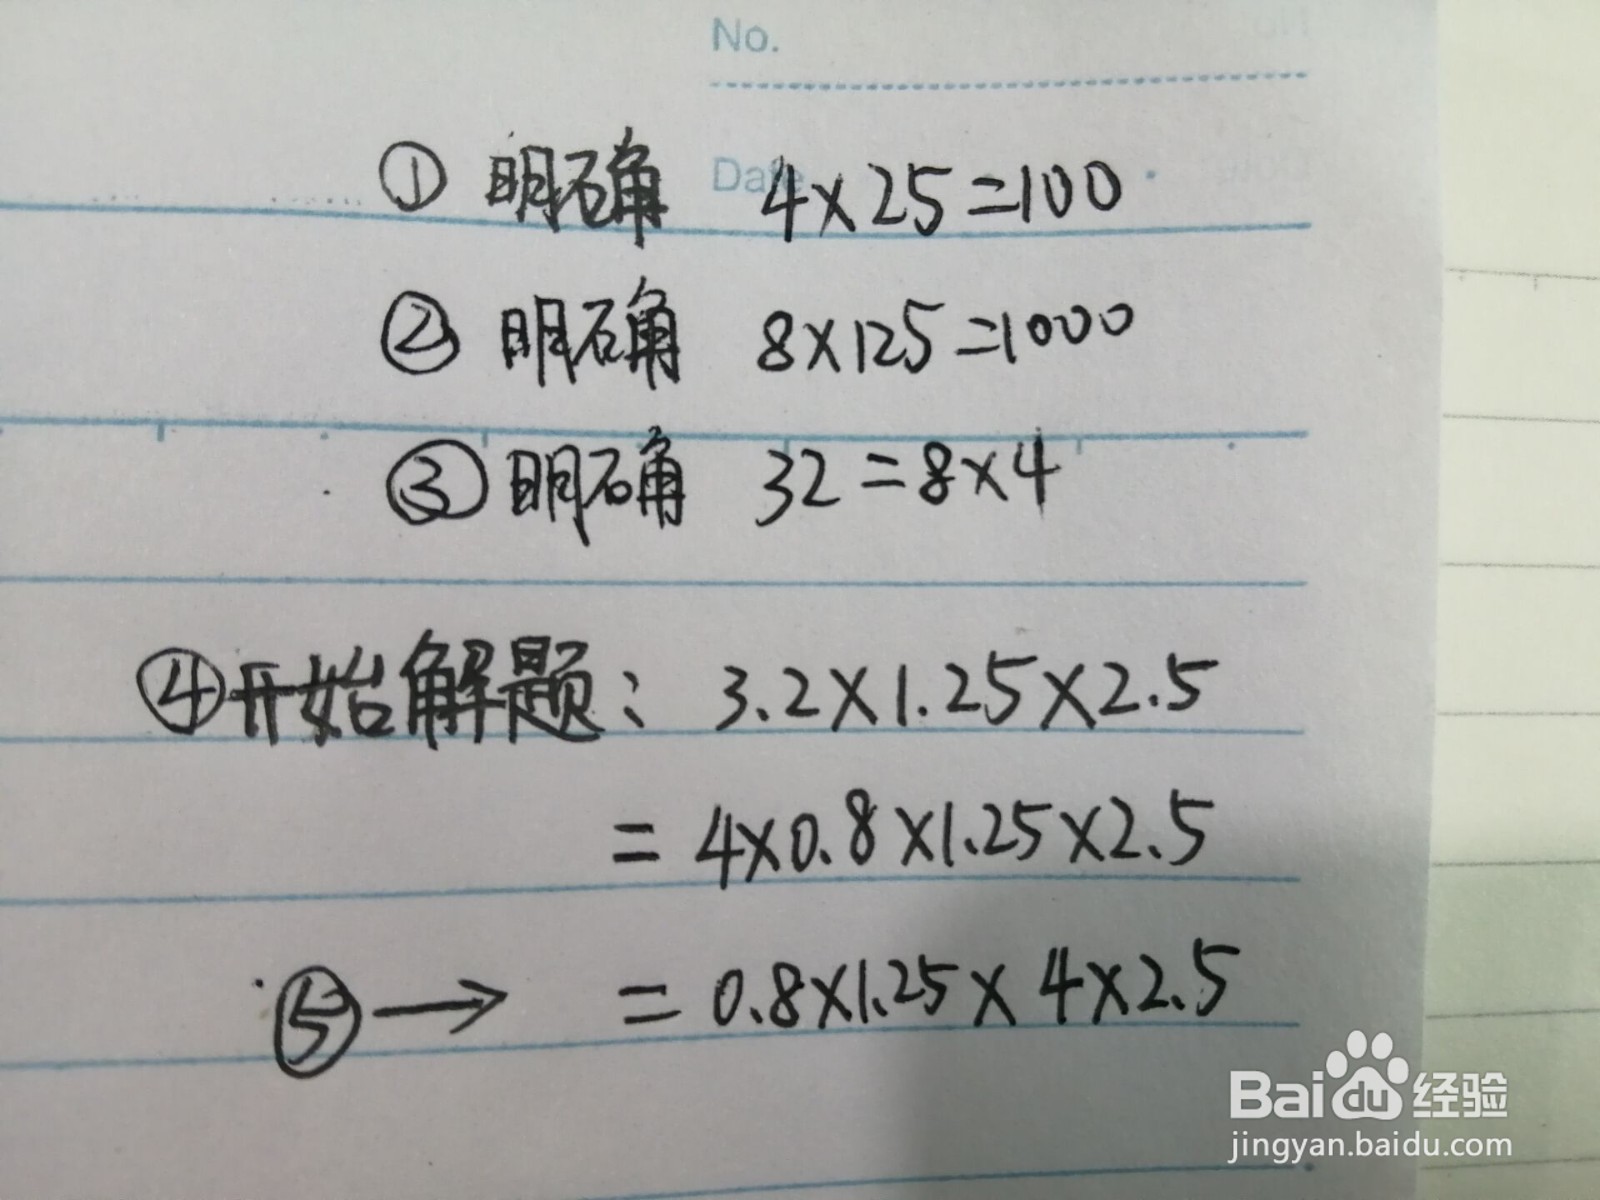 No.
Date
① 明确 4×25=100
② 明确 8×125=1000
③ 明确 32=8×4
④开始解题: 3.2×1.25×2.5
=4×0.8×1.25×2.5
⑤→ =0.8×1.25×4×2.5
Baidu经验
jingyan.baidu.com